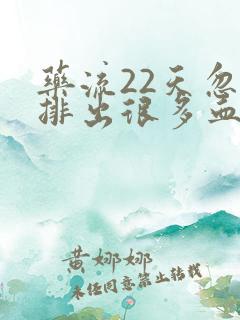 药流22天忽
排出很多血
黄娜娜
未经同意禁止转载